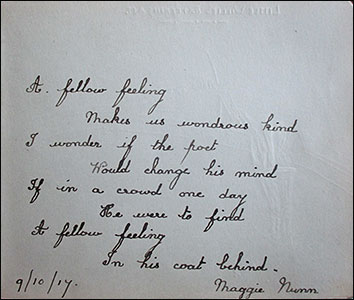 A. fellow feeling
Makes us wondrous kind
I wonder if the poet
Would change his mind
If in a crowd one day
He were to find
A fellow feeling
In his coat behind.
9/10/17. Maggie Nunn